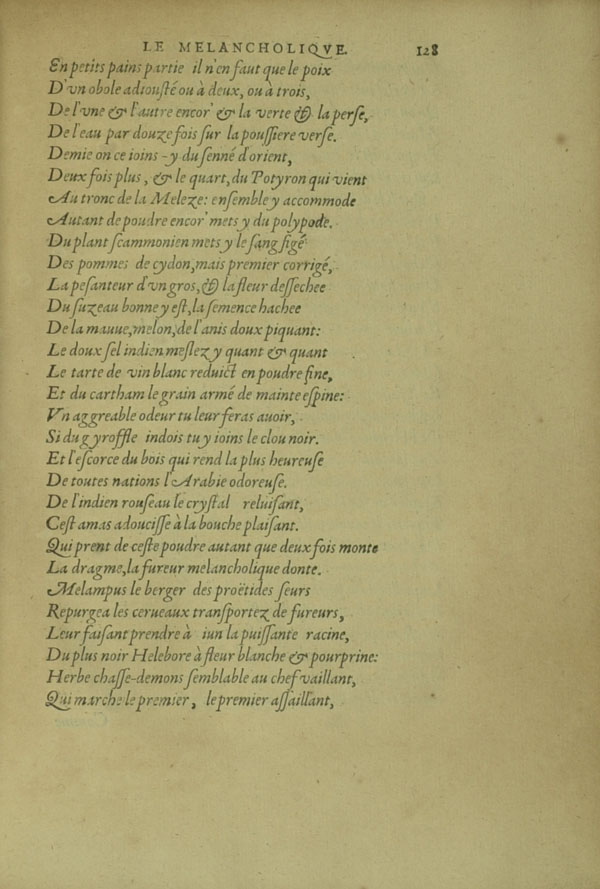 LE MELANCHOLIQVE. 128
En petits pains partie il n'en faut que le poix
D'vn obole adiousté ou à deux, ou à trois,
De l'vne & l'autre encor' & la verte & la perse,
De l'eau par douze fois sur la poussiere verse.
Demie on ce ioins -y du senné d'orient,
Deux fois plus, & le quart, du Potyron qui vient
Au tronc de la Meleze: ensemble y accommode
Autant de poudre encor' mets y du polypode.
Du plant scammonien mets y le sang figé
Des pommes de cydon, mais premier corrigé,
La pesanteur d'vn gros, & la fleur dessechee
Du suzeau bonne y est, la semence hachee
De la mauue, melon, de l'anis doux piquant:
Le doux sel indien meslez y quant & quant
Le tarte de vin blanc reduict en poudre fine,
Et du cartham le grain armé de mainte espine:
Vn aggreable odeur tu leur feras auoir,
Si du gyroffle indois tu y ioins le clou noir.
Et l'escorce du bois qui rend la plus heureuse
De toutes nations l'Arabie odoreuse.
De l'indien rouseau le crystal reluisant,
Cest amas adoucisse à la bouche plaisant.
Qui prent de ceste poudre autant que deux fois monte
La dragme, la fureur melancholique donte.
Melampus le berger des proëtides seurs
Repurgea les cerueaux transportez de fureurs,
Leur faisant prendre à iun la puissante racine,
Du plus noir Helebore à fleur blanche & pourprine:
Herbe chasse-demons semblable au chef vaillant,
Qui marche le premier, le premier assaillant,